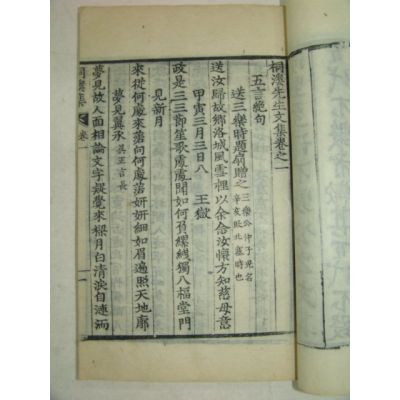 桐溪先生文集卷之一
五言絶句
送三樂時題扇贈之 三樂公仲子兒名 辛亥貶北塞時也
送汝歸故鄉洛城風雪裡以余念汝懷方知慈母意
甲寅三月三日入 王獄
政是三三節笙歌處處聞如何負縲絏獨入福堂門
見新月
來從何處來落向何處落姸姸細如眉遍照天地廓
夢見翼承 吳正言長
夢見故人面相論文字疑覺來樑月白淸淚自連洏
桐溪集 卷一 一